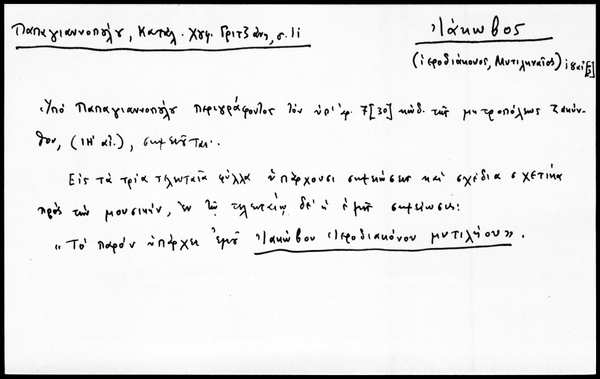 Παπαγιαννοπούλου, Κατάλ. Χφφ. Γριτζάνη, σ. 11
Ἰάκωβος
(ἱεροδιάκονος, Μυτιληναῖος)
Ὑπὸ Παπαγιαννοπούλου περιγράφοντος τὸν ὑπ' ἀρ. 7[30] κώδ. τῆς μητροπόλεως Ζακύν-
θου, (ΙΗ' αἰ.), σημειοῦται·
Εἰς τὰ τρία τελευταῖα φύλλα ὑπάρχουσι σημειώσεις καὶ σχέδια σχετικὰ
πρὸς τὴν μουσικήν, ἐν τῷ τελευταίῳ δὲ καὶ ἡ ἑξῆς σημείωσις:
«Τὸ παρὸν ὑπάρχει ἐμοῦ Ἰακώβου Ἱεροδιακόνου μυτιλήνου».